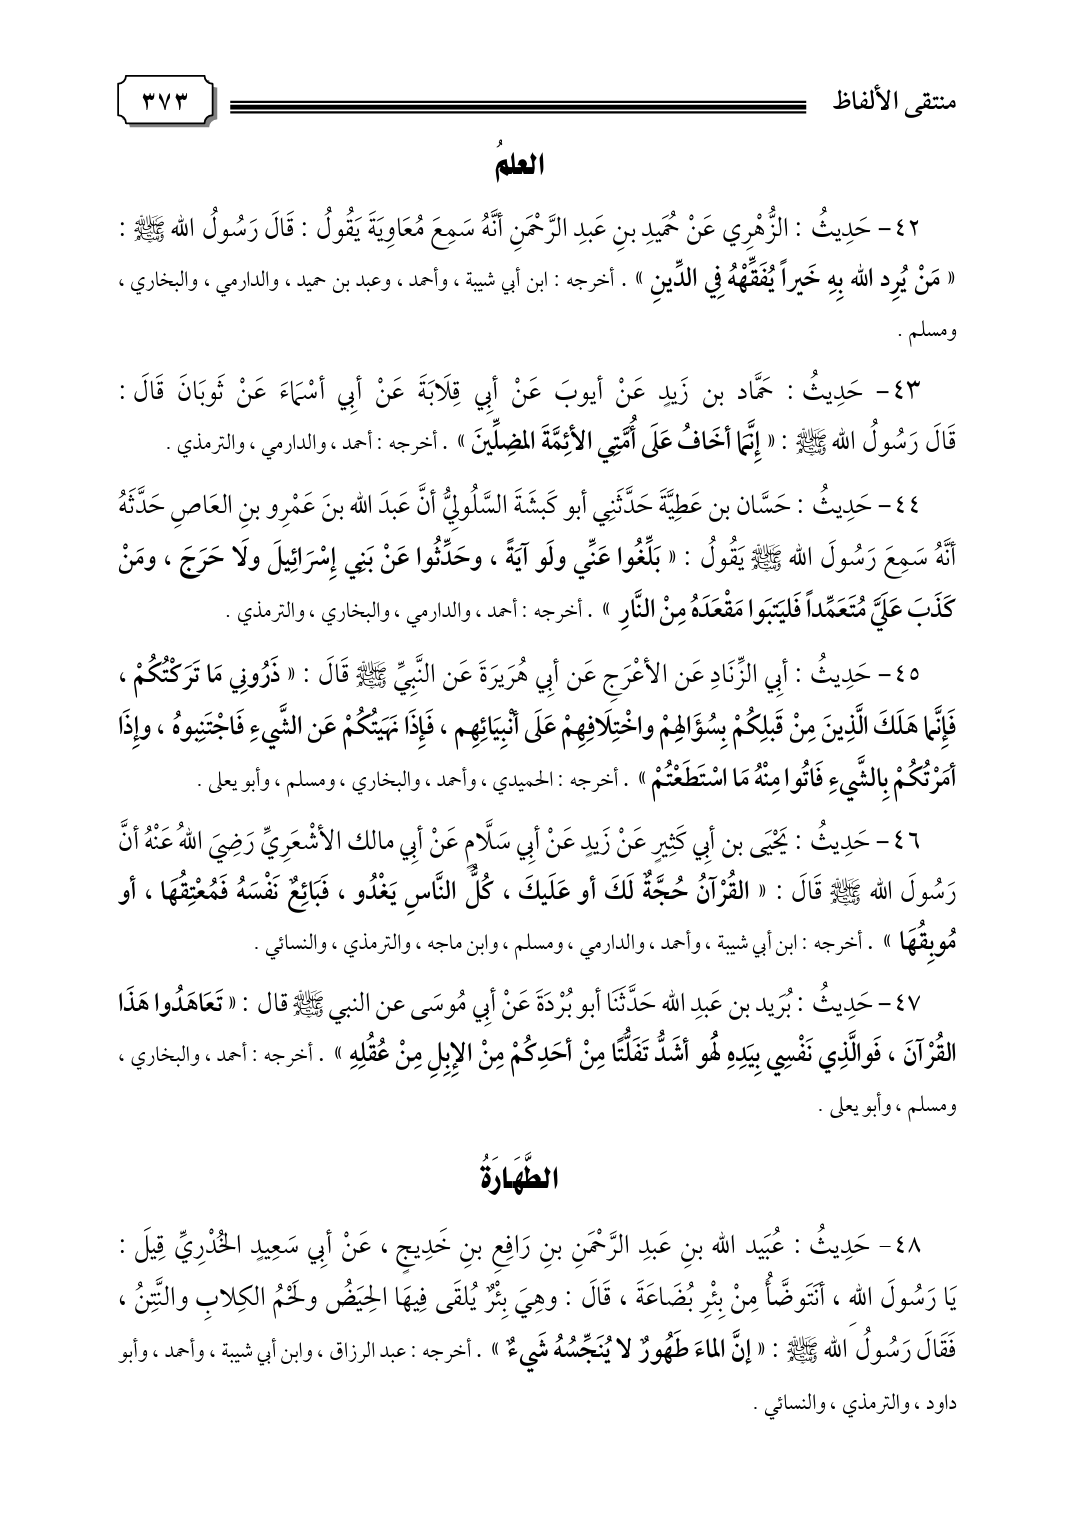 منتقى الألفاظ
٣٧٣
العلمُ
٤٢- حَدِيثُ : الزُّهْرِي عَنْ حُمَيدِ بنِ عَبدِ الرَّحْمَنِ أنَّهُ سَمِعَ مُعَاوِيَةَ يَقُولُ : قَالَ رَسُولُ الله ﷺ :
« مَنْ يُرِد الله بِهِ خَيراً يُفَقِّهْهُ فِي الدِّينِ » . أخرجه : ابن أبي شيبة ، وأحمد ، وعبد بن حميد ، والدارمي ، والبخاري ،
ومسلم .
٤٣- حَدِيثُ : حَمَّاد بن زَيدٍ عَنْ أيوبَ عَنْ أبِي قِلَابَةَ عَنْ أبِي أسْمَاءَ عَنْ ثَوبَانَ قَالَ :
قَالَ رَسُولُ الله ﷺ : « إِنَّمَا أخَافُ عَلَى أُمَّتِي الأئِمَّةَ المضِلِّينَ » . أخرجه : أحمد ، والدارمي ، والترمذي .
٤٤- حَدِيثُ : حَسَّان بن عَطِيَّةَ حَدَّثَنِي أبو كَبشَةَ السَّلُولِيُّ أنَّ عَبدَ الله بنَ عَمْرِو بنِ العَاصِ حَدَّثَهُ
أنَّهُ سَمِعَ رَسُولَ الله ﷺ يَقُولُ : « بَلِّغُوا عَنِّي ولَو آيَةً ، وحَدِّثُوا عَنْ بَنِي إِسْرَائِيلَ ولَا حَرَجَ ، ومَنْ
كَذَبَ عَلَيَّ مُتَعَمِّداً فَليَتبَوا مَقْعَدَهُ مِنْ النَّارِ » . أخرجه : أحمد ، والدارمي ، والبخاري ، والترمذي .
٤٥- حَدِيثُ : أبِي الزِّنَادِ عَن الأعْرَجِ عَن أبِي هُرَيَرَةَ عَن النَّبِيِّ ﷺ قَالَ : « ذَرُونِي مَا تَرَكْتُكُمْ ،
فَإِنَّما هَلَكَ الَّذِينَ مِنْ قَبلِكُمْ بِسُؤَالِهِمْ واخْتِلَافِهِمْ عَلَى أنْبِيَائِهِم ، فَإِذَا نَهَيَتُكُمْ عَن الشَّيءِ فَاجْتَنِبوهُ ، وإِذَا
أمَرْتُكُمْ بِالشَّيءِ فَاتُوا مِنْهُ مَا اسْتَطَعْتُمْ » . أخرجه : الحميدي ، وأحمد ، والبخاري ، ومسلم ، وأبو يعلى .
٤٦- حَدِيثُ : يَحْيَى بن أبِي كَثِيرٍ عَنْ زَيدٍ عَنْ أبِي سَلَّامٍ عَنْ أبِي مالك الأشْعَرِيِّ رَضِيَ اللهُ عَنْهُ أنَّ
رَسُولَ الله ﷺ قَالَ : « القُرْآنُ حُجَّةٌ لَكَ أو عَلَيكَ ، كُلُّ النَّاسِ يَغْدُو ، فَبَائِعٌ نَفْسَهُ فَمُعْتِقُهَا ، أو
مُوبِقُهَا » . أخرجه : ابن أبي شيبة ، وأحمد ، والدارمي ، ومسلم ، وابن ماجه ، والترمذي ، والنسائي .
٤٧- حَدِيثُ : بُرَيد بن عَبدِ الله حَدَّثَنَا أبو بُرْدَةَ عَنْ أبِي مُوسَى عن النبي ﷺ قال : « تَعَاهَدُوا هَذَا
القُرْآنَ ، فَوالَّذِي نَفْسِي بِيَدِهِ لَهُو أشَدُّ تَفَلُّتًا مِنْ أحَدِكُمْ مِنْ الإِبِلِ مِنْ عُقُلِهِ » . أخرجه : أحمد ، والبخاري ،
ومسلم ، وأبو يعلى .
الطَّهَارَةُ
٤٨- حَدِيثُ : عُبَيد الله بنِ عَبدِ الرَّحْمَنِ بنِ رَافِعِ بنِ خَدِيجٍ ، عَنْ أبِي سَعِيدٍ الخُدْرِيِّ قِيلَ :
يَا رَسُولَ اللهِ ، أنَتَوضَّأُ مِنْ بِئْرِ بُضَاعَةَ ، قَالَ : وهِيَ بِئْرٌ يُلقَى فِيهَا الحِيَضُ ولَحْمُ الكِلابِ والنَّتِنُ ،
فَقَالَ رَسُولُ الله ﷺ : « إنَّ الماءَ طَهُورٌ لا يُنَجِّسُهُ شَيءٌ » . أخرجه : عبد الرزاق ، وابن أبي شيبة ، وأحمد ، وأبو
داود ، والترمذي ، والنسائي .